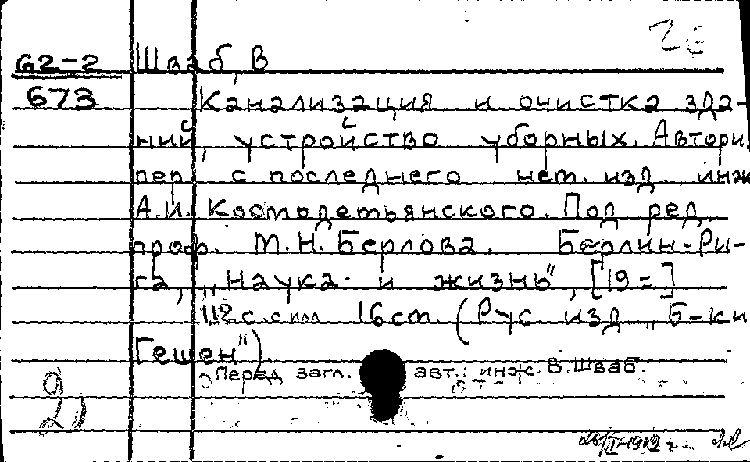 62-2 Шваб, В
673 Канализация и очистка зда-
ний, устройство уборных. Автори.
пер. с последнего нем. изд. инж
А.И. Костодетьянского. Под ред.
проф. М.Н. Берлова. Берлин-Ри-
га, „Наука и жизнь“, [19-]
112 с. с илл. 16 ст. (Рус. изд. „Б-ки
Гешен“).
Перед загл. авт.: инж. В. Шваб.